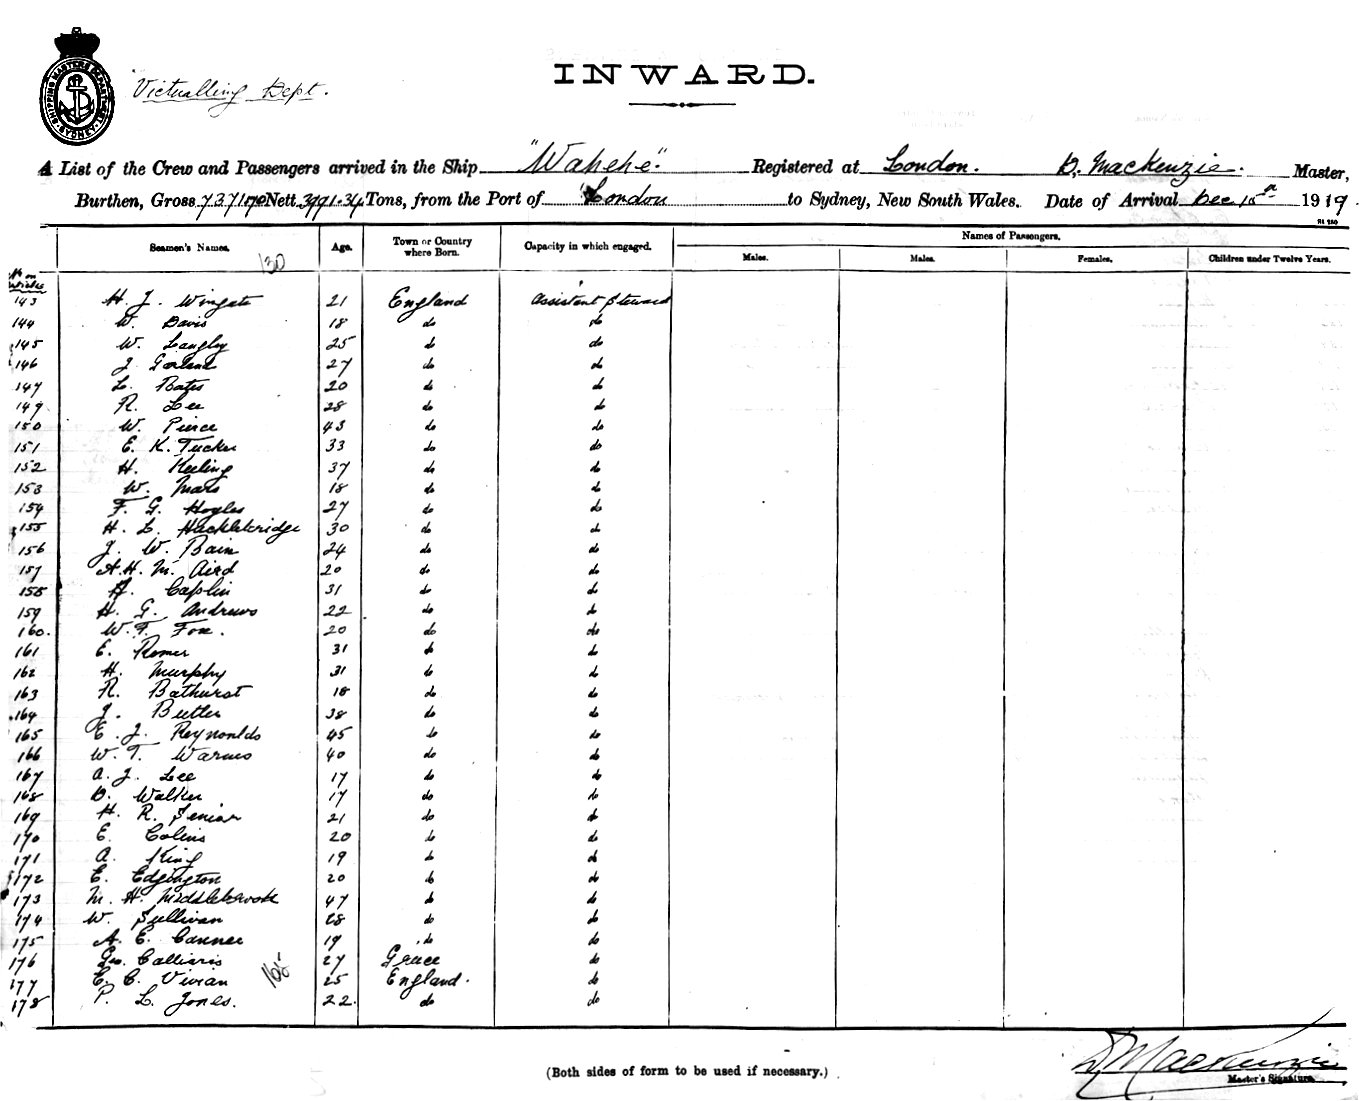 "Victualling Dept.
INWARD.
SHIPPING MASTERS DEPARTMENT SYDNEY
A List of the Crew and Passengers arrived in the Ship "Wahehe". Registered at London. D. MacKenzie. Master,
Burthen, Gross Nett. Tons, from the Port of London to Sydney, New South Wales. Date of Arrival Dec 1919.
Seamen's Names. Age. Town or Country where Born. Capacity in which engaged. Names of Passengers.
Males. Males. Females. Children under Twelve Years.
130
No on Articles
143 H. J. Wingate 21 England Assistant Steward
144 W. Davis 18 do do
145 W. Langley 25 do do
146 J. Garland 27 do do
147 L. Bates 20 do do
149 R. Lee 28 do do
150 W. Pierce 43 do do
151 E. K. Tucker 33 do do
152 H. Keeling 37 do do
153 W. Mars 18 do do
154 F. G. Hoyles 27 do do
155 H. L. Hacklebridge 30 do do
156 J. W. Bain 24 do do
157 A. H. M. Aird 20 do do
158 Caplin 31 do do
159 H. G. Andrews 22 do do
160. W. F. Fox. 20 do do
161 E. Romer 31 do do
162 H. Murphy 31 do do
163 R. Bathurst 18 do do
164 J. Butler 38 do do
165 E. J. Reynonlds 45 do do
166 W. T. Warnes 40 do do
167 A. J. Lee 17 do do
168 D. Walker 17 do do
169 H. R. Senior 21 do do
170 E. Colins 20 do do
171 A. King 19 do do
172 E. Edgington 20 do do
173 M. H. Middlebrook 47 do do
174 W. Sullivan 28 do do
175 A. E. Cannee 19 do do
176 Geo. Calliaris 27 Greece do
177 E. C. Vivian 25 England. do
178 P. L. Jones. 22. do do
D MacKenzie
Master's Signature.
(Both sides of form to be used if necessary.)